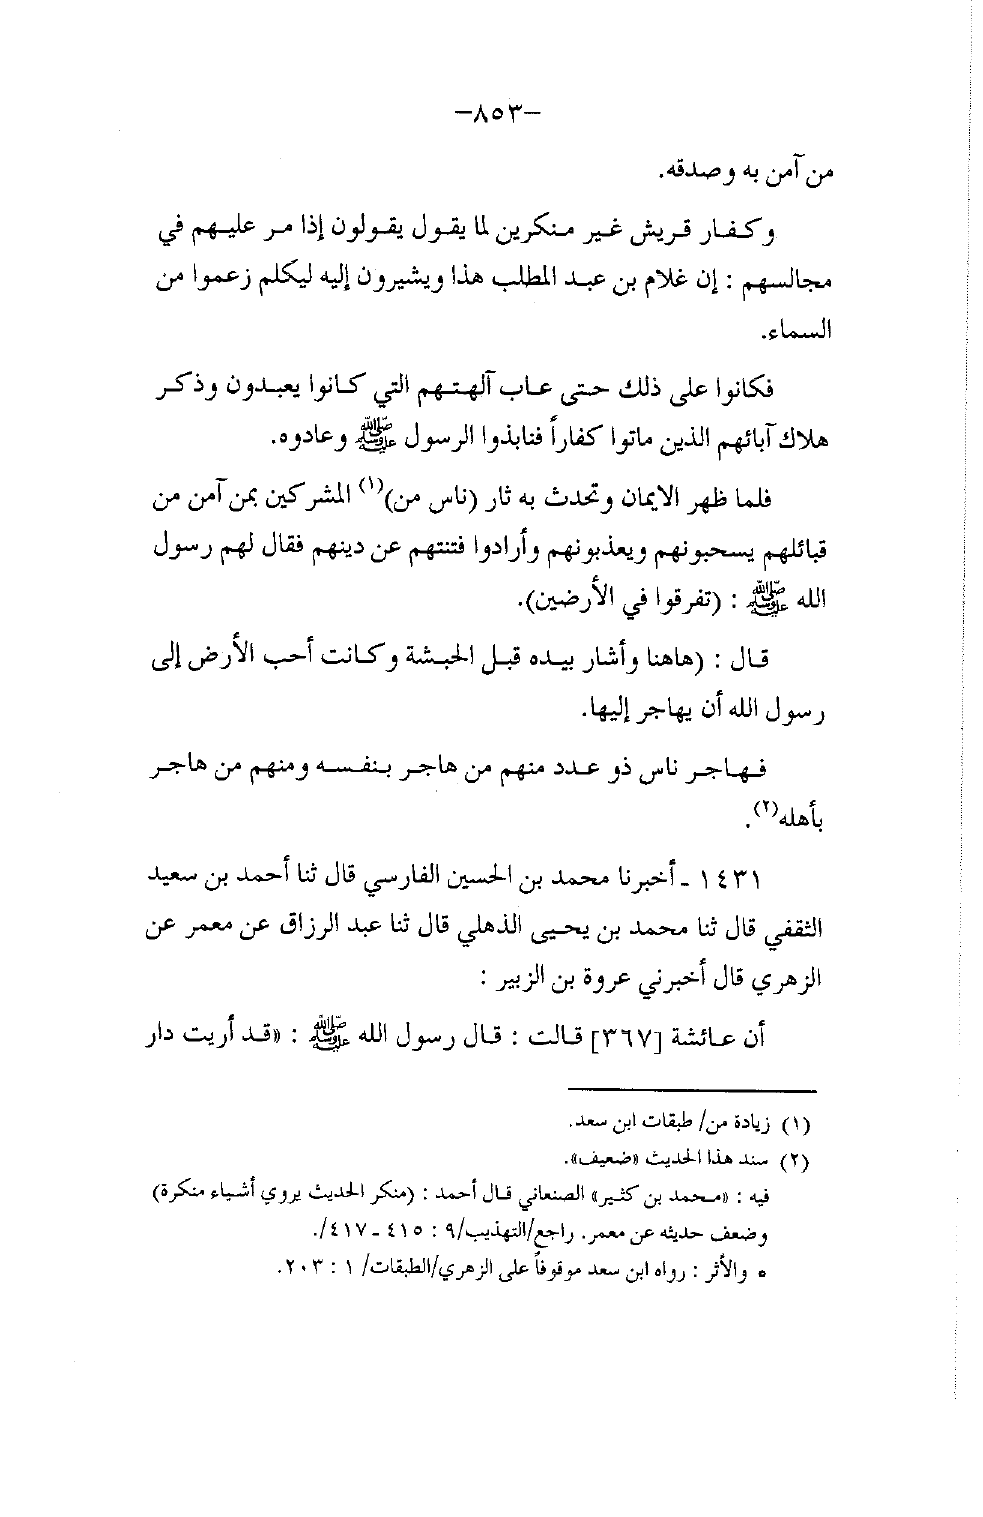 –٨٥٣–
من آمن به وصدقه.
وكفار قريش غير منكرين لما يقول يقولون إذا مر عليهم في
مجالسهم : إن غلام بن عبد المطلب هذا ويشيرون إليه ليكلم زعموا من
السماء.
فكانوا على ذلك حتى عاب آلهتهم التي كانوا يعبدون وذكر
هلاك آبائهم الذين ماتوا كفاراً فنابذوا الرسول ﷺ وعادوه.
فلما ظهر الايمان وتحدث به ثار (ناس من)(١) المشركين بمن آمن من
قبائلهم يسحبونهم ويعذبونهم وأرادوا فتنتهم عن دينهم فقال لهم رسول
الله ﷺ : (تفرقوا في الأرضين).
قال : (هاهنا وأشار بيده قبل الحبشة وكانت أحب الأرض إلى
رسول الله أن يهاجر إليها.
فهاجر ناس ذو عدد منهم من هاجر بنفسه ومنهم من هاجر
بأهله(٢).
١٤٣١ ـ أخبرنا محمد بن الحسين الفارسي قال ثنا أحمد بن سعيد
الثقفي قال ثنا محمد بن يحيى الذهلي قال ثنا عبد الرزاق عن معمر عن
الزهري قال أخبرني عروة بن الزبير :
أن عائشة [٣٦٧] قالت : قال رسول الله ﷺ : «قد أريت دار
(١) زيادة من/ طبقات ابن سعد.
(٢) سند هذا الحديث «ضعيف».
فيه : «محمد بن كثير» الصنعاني قال أحمد : (منكر الحديث يروي أشياء منكرة)
وضعف حديثه عن معمر. راجع/التهذيب/٩ : ٤١٥ ـ ٤١٧/.
• والأثر : رواه ابن سعد موقوفاً على الزهري/الطبقات/ ١ : ٢٠٣.